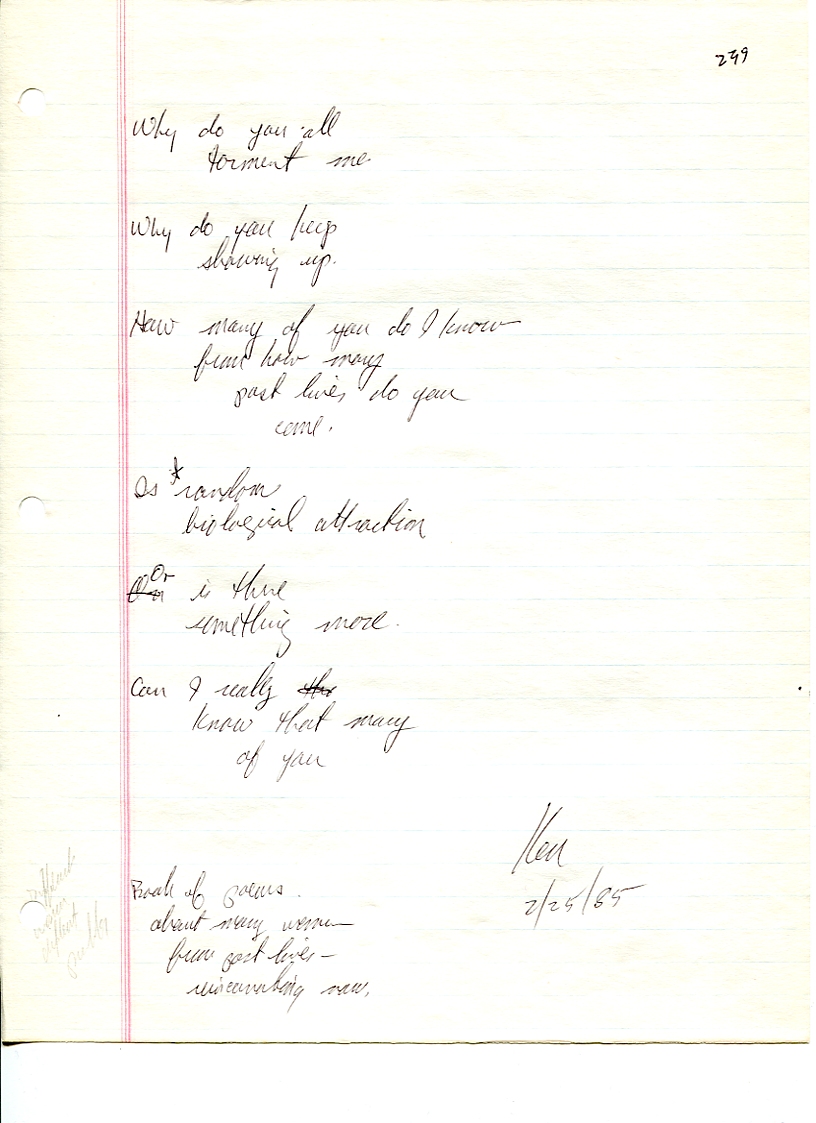 299
Why do you all
torment me
Why do you keep
showing up.
How many of you do I know
from how many
past lives do you
come.
Is it random
biological attraction
Or is there
something more.
Can I really
know that many
of you
Ken
2/25/85
Book of poems
about many women
from past lives -
reincarnating now.
different
women
different